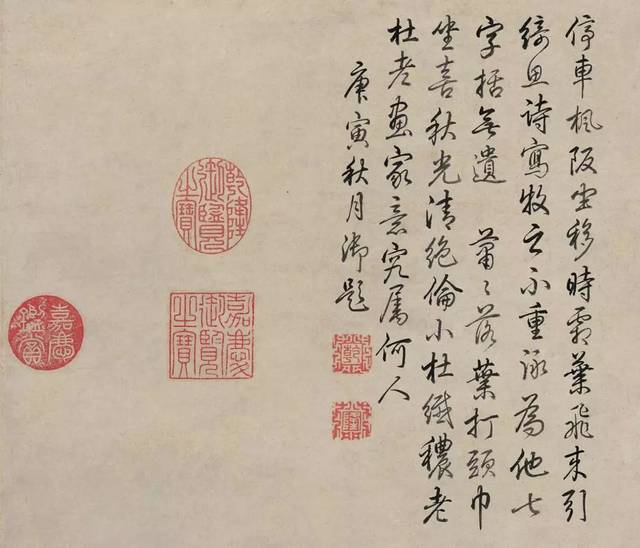 停車楓阪坐移時霜葉飛來引
綺思詩寫牧之不重詠為他七
字括無遺 蕭〻落葉打頭巾
坐喜秋光清絶倫小杜纖穠老
杜老畫家意究屬何人
庚寅秋月御題
乾隆御覽之寶
嘉慶御覽之寶
嘉慶鑑賞